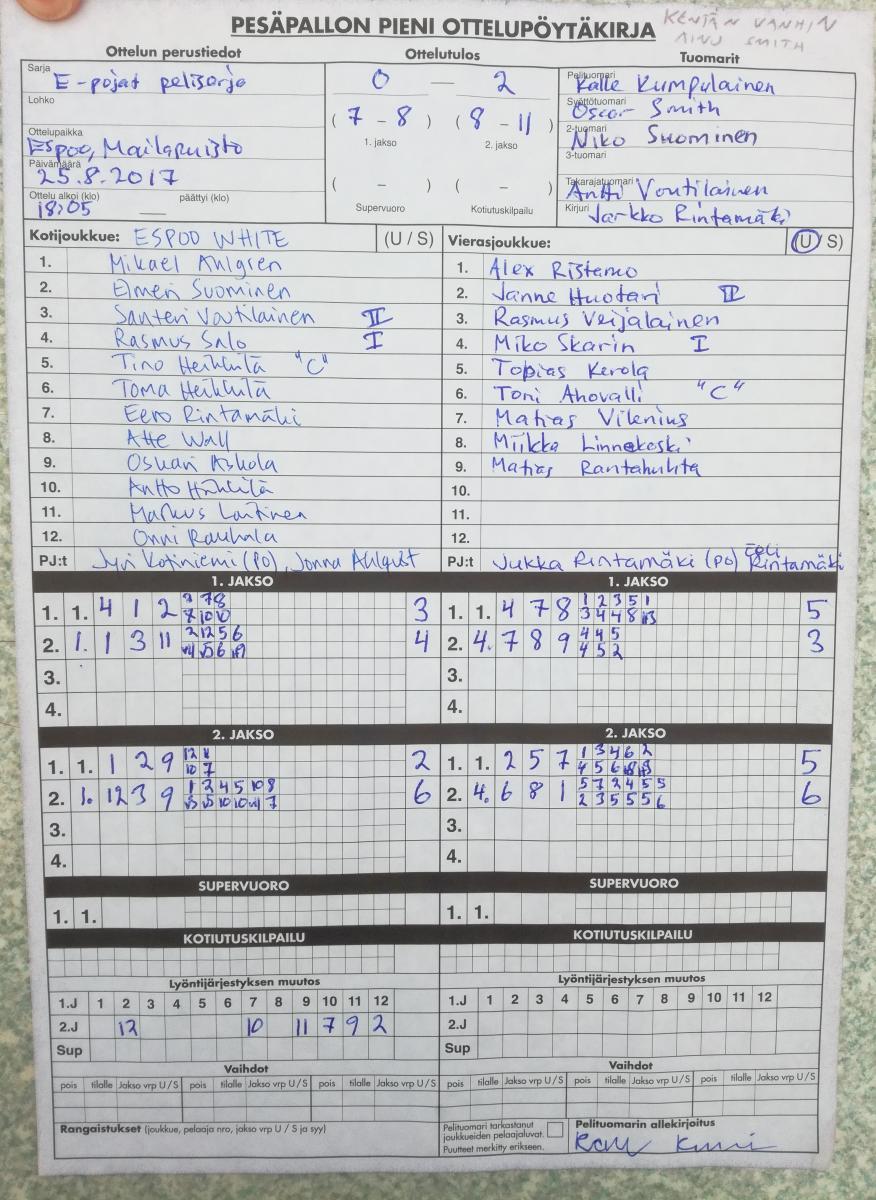 PESÄPALLON PIENI OTTELUPÖYTÄKIRJA
KENTÄN VANHIN
AINO SMITH
Ottelun perustiedot
Ottelutulos
Tuomarit
Sarja
E-pojat pelisarja
Lohko
Ottelupaikka
Espoo, Mailapuisto
Päivämäärä
25.8.2017
Ottelu alkoi (klo) päättyi (klo)
18:05 —
0 — 2
( 7 - 8 ) ( 8 - 11 )
1. jakso 2. jakso
( - ) ( - )
Supervuoro Kotiutuskilpailu
Pelituomari
Kalle Kumpulainen
Syöttötuomari
Oscar Smith
2-tuomari
Niko Suominen
3-tuomari
Takarajatuomari
Antti Voutilainen
Kirjuri
Jarkko Rintamäki
Kotijoukkue: ESPOO WHITE (U / S)
1. Mikael Ahlgren
2. Elmeri Suominen
3. Santeri Voutilainen II
4. Rasmus Salo I
5. Tino Heikkilä "C"
6. Toma Heikkilä
7. Eero Rintamäki
8. Atte Wall
9. Oskari Askola
10. Antto Heikkilä
11. Markus Laitinen
12. Onni Rauhala
PJ:t Jyri Kotiniemi (PO), Jonna Ahlqvist
Vierasjoukkue: (U / S)
1. Alex Ristamo
2. Janne Huotari II
3. Rasmus Veijalainen
4. Miko Skarin I
5. Tobias Kerola
6. Toni Ahovalli "C"
7. Matias Vilenius
8. Miikka Linnakoski
9. Matias Rantahuhta
10.
11.
12.
PJ:t Jukka Rintamäki (PO) Rintamäki
1. JAKSO
1. 1. 4 1 2 3
2. 1. 1 3 11 4
3.
4.
1. JAKSO
1. 1. 4 7 8 5
1 2 3 5 1
3 4 4 8 13
2. 4. 7 8 9 3
4 4 5
4 5 2
3.
4.
2. JAKSO
1. 1. 1 2 9 2
2. 1. 12 3 9 6
3.
4.
2. JAKSO
1. 1. 2 5 7 5
1 3 4 6 2
2. 4. 6 8 1 6
5 7 2 4 5 5
2 3 5 5 5 6
3.
4.
SUPERVUORO
1. 1.
SUPERVUORO
1. 1.
KOTIUTUSKILPAILU
KOTIUTUSKILPAILU
Lyöntijärjestyksen muutos
1.J 1 2 3 4 5 6 7 8 9 10 11 12
2.J 12 10 11 7 9 2
Sup
Lyöntijärjestyksen muutos
1.J 1 2 3 4 5 6 7 8 9 10 11 12
2.J
Sup
Vaihdot
pois tilalle Jakso vrp U / S pois tilalle Jakso vrp U / S pois tilalle Jakso vrp U / S
Vaihdot
pois tilalle Jakso vrp U / S pois tilalle Jakso vrp U / S pois tilalle Jakso vrp U / S
Rangaistukset (joukkue, pelaaja nro, jakso vrp U / S ja syy)
Pelituomari tarkastanut
joukkueiden pelaajaluvat.
Puutteet merkitty erikseen.
Pelituomarin allekirjoitus